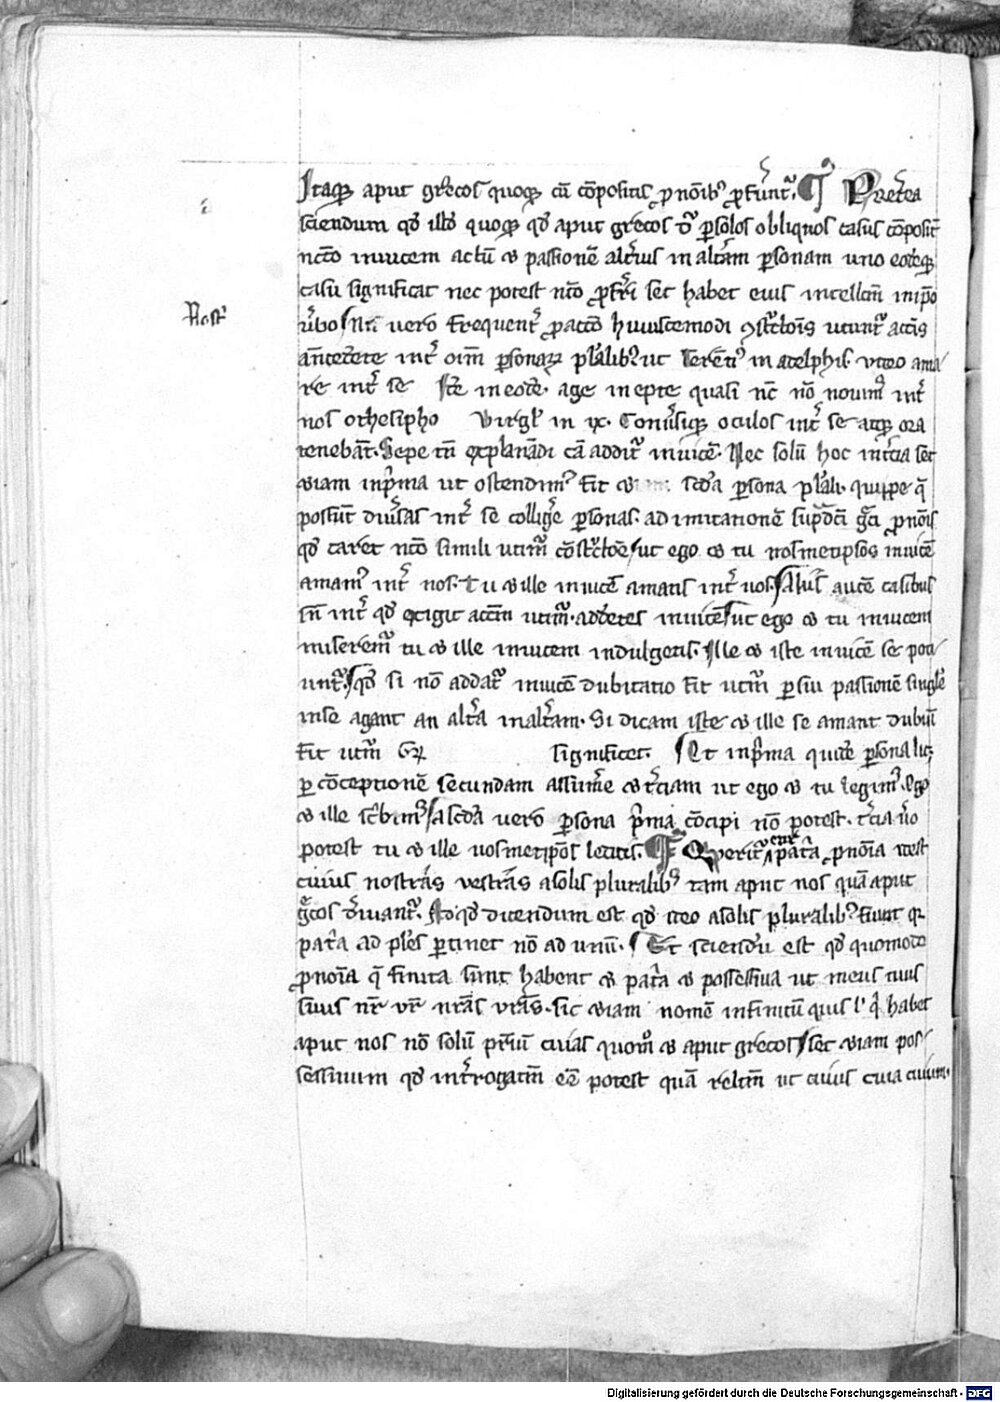 Itaq; aput grecos quoq; cū cōpositis ꝓnoıb⁹ ꝓferūtur. ¶ Preterea
a
sciendum qđ illđ quoq; qđ aput grecos ꝑ solos obliquos casus cōposit
ncto inuicem actū & passionē alterius in alterā personam uno eodēq;
casu significat nec potest ncto ꝓferri set habet eius intellcm in ꝓpo
Nostri
ūbo Nri uero frequent hᵘiuscemodi ꝯstructōis utunt actis
antecedente int oim personaꝝ pluralib⁹ ut Terenti⁹ in adelphis. uideo ama
re int se Itē in eodē. age inepte quasi nc nō nouim⁹ int
nos othesipho Virgl in ix. Conuersiq; oculos int se atq; ora
tenebāt. Sepe tn explanādi cā addit inuicē. Nec solū hoc in tercia set
& iam in pma ut ostendim⁹ fit & scda persona plali. quippe q̄
possūt diu͛sas int se collige͛ personas. ad imitationē supdci gci ꝓnois
qđ caret ncto simili utim cōstctōe ut ego & tu nosmetipsos inuicē
amam⁹ int nos. Tu & ille inuicē amatis int uos. Aliis autē casibus
sn int qđ exigit actm utim addētes inuicē ut ego & tu inuicem
miserem tu & ille inuicem indulgetis. Ille & iste inuicē se poti
unt. qđ si nō addat inuicē dubitatio fit utm per sui passionē singli
in se agant an altera in alteram. Si dicam iste & ille se amant dubiū
fit utm significet. Et in pma quidē persona licz
per cōceptionē secundam assumere & terciam ut ego & tu legim⁹. ego
& ille scbim⁹ a scda uero persona pma cōcipi nō potest. tercia uo
potest tu & ille uosmetipos leditis. ¶ Queritur cur patria ꝓnoia idest
cuius nostras uestras a solis pluralib⁹ tam aput nos quā aput
gcos deriuant. Ad qđ dicendum est qđ ideo a solis pluralib⁹ fiunt qꝛ
patria ad ples ptinet nō ad unū. Et sciendū est qđ quomodo
ꝓnoia q̄ finita sunt habent & patria & possessiua ut meus tuus
suus nr vr nras vras. sic & iam nomē infinitū quis l' qi habet
aput nos nō solū patrium cuias quom & aput grecos set & iam pos
sessiuum qđ interrogatm ee potest quā reltm ut cuius cuia cuium.
Digitalisierung gefördert durch die Deutsche Forschungsgemeinschaft - DFG